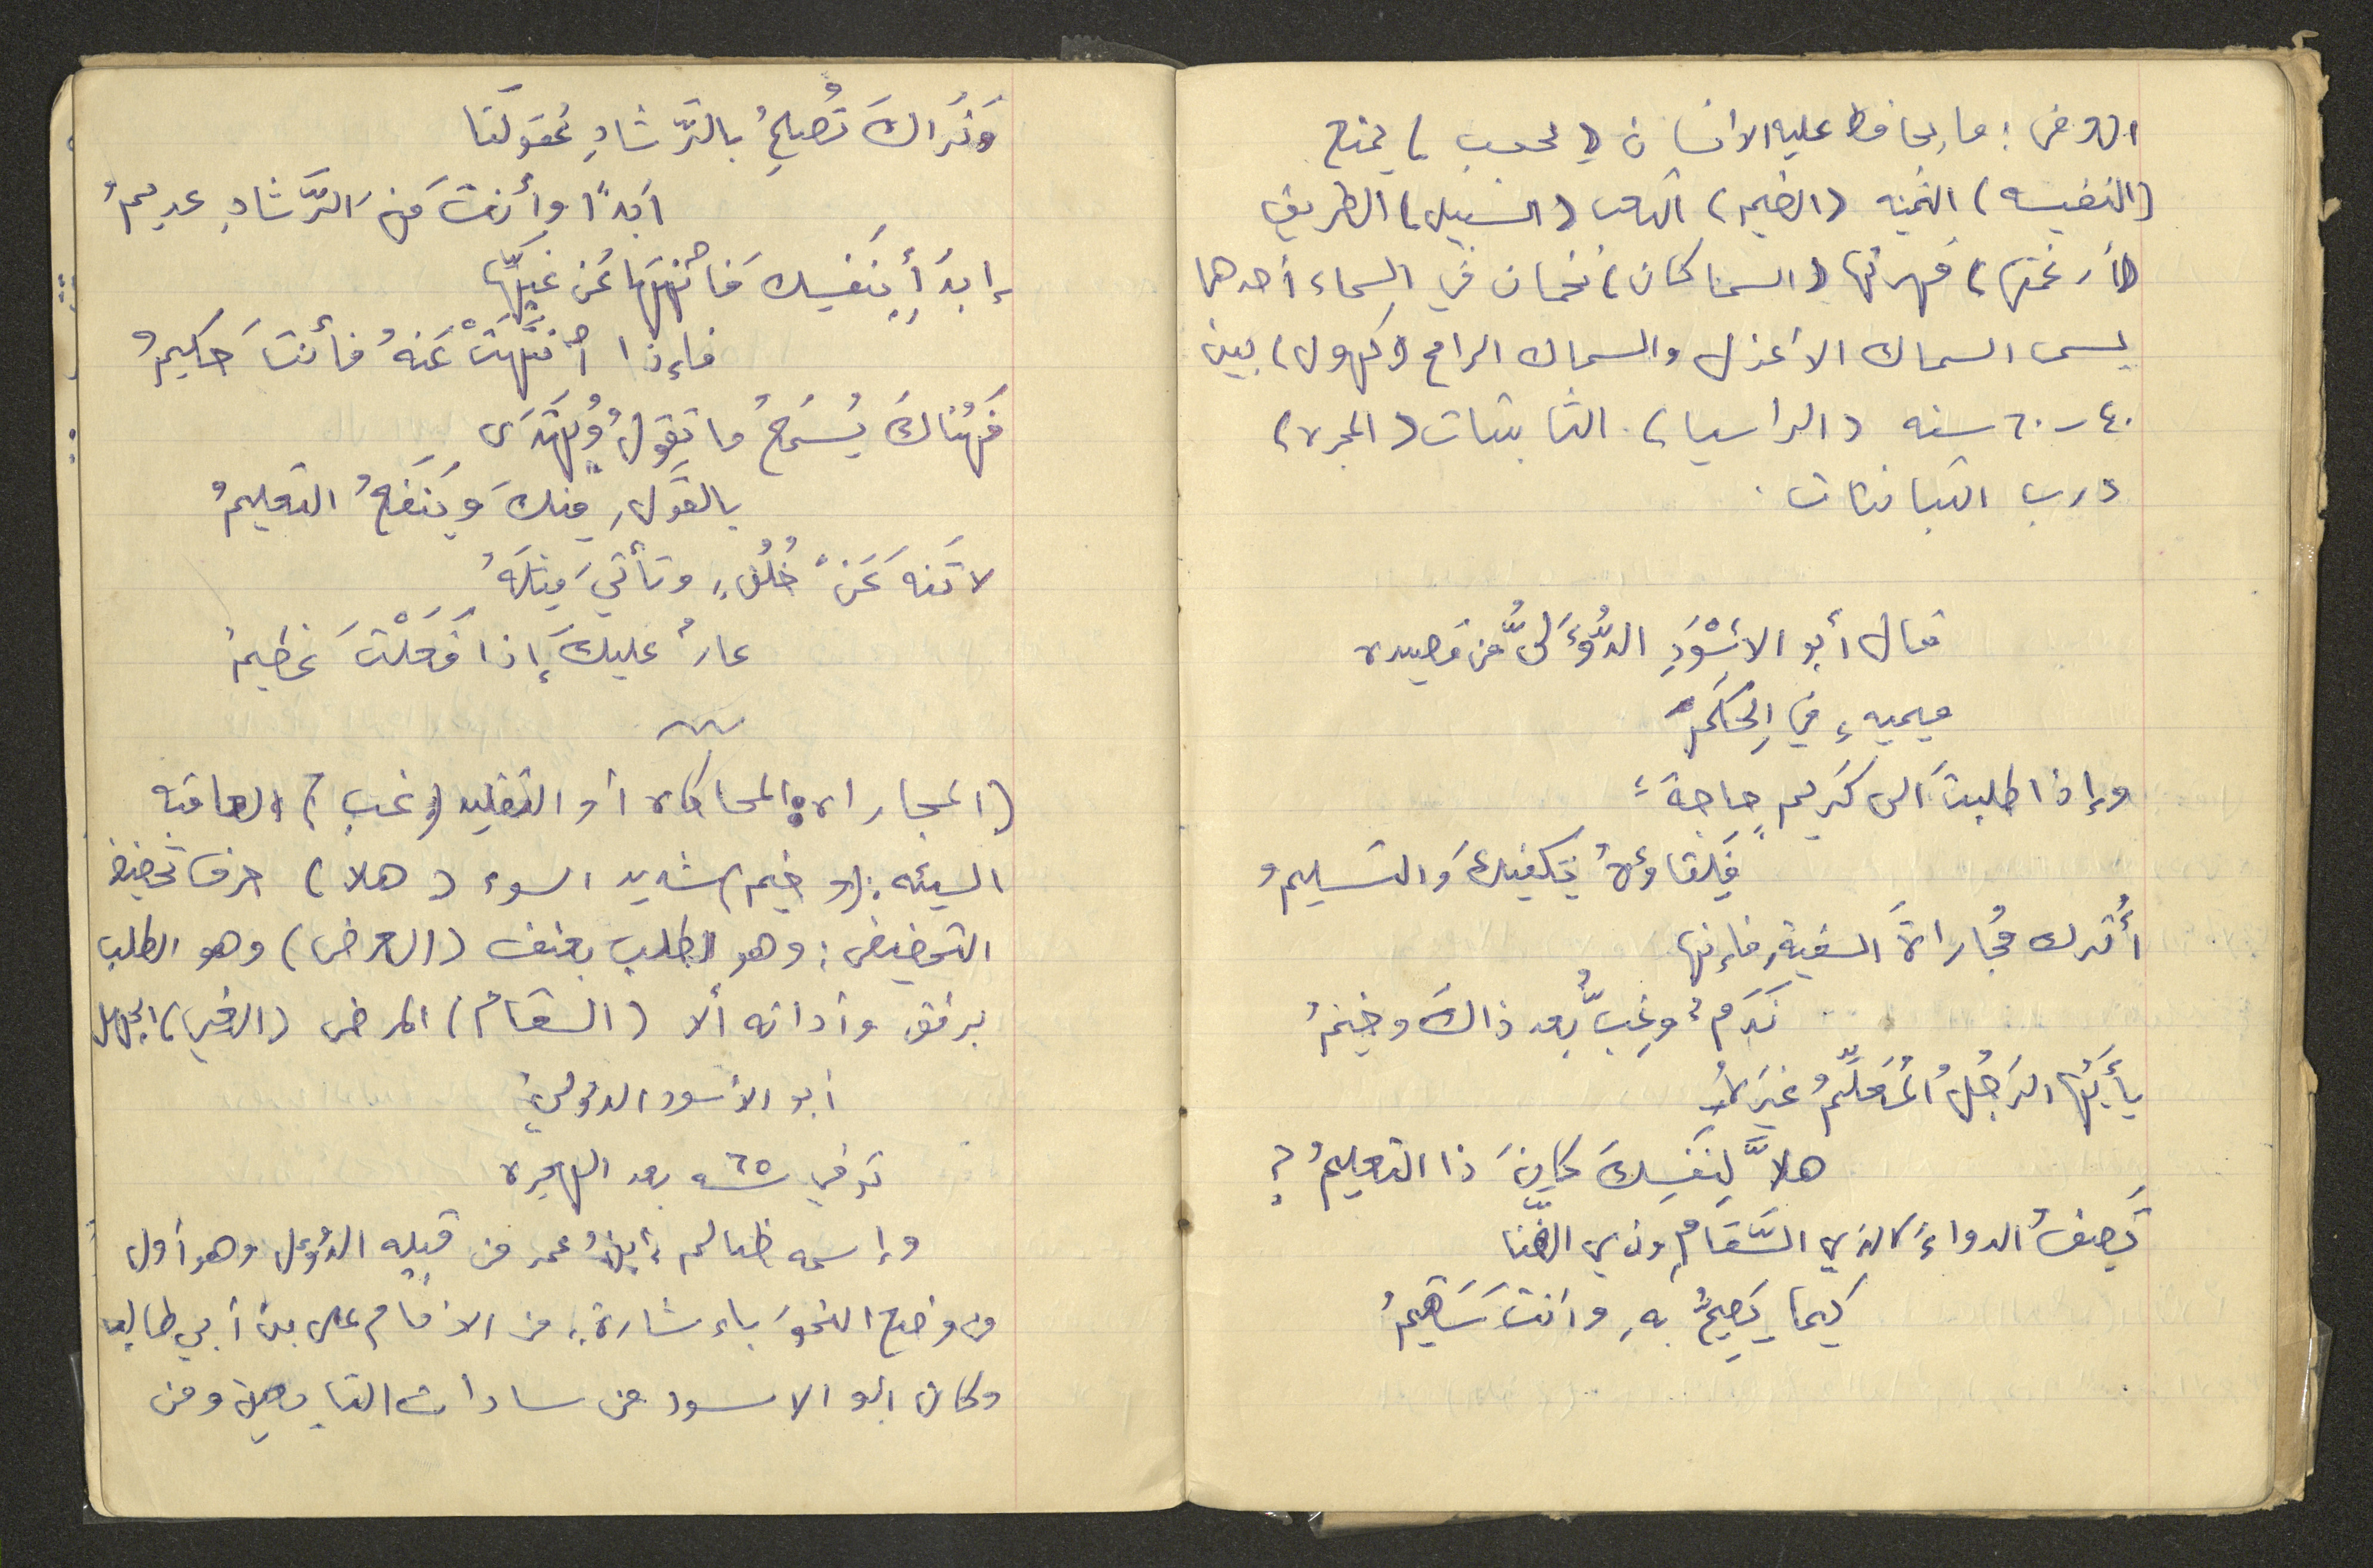 العرض : ما يحافظ عليه الانسان (يحجب) يمنع
(النفيسه) الثمينه (الضيم) التعب (السبيل) الطريق
(أرغمتها) قهرتها (السماكان) نجمان في السماء أحدهما
يسمى السماك الأعذل والسماك الرامح (كهول) بين
٤٠ - ٦٠ سنه (الراسيا) الثابتات (المجره)
درب التبانات .
قال أبو الأسْوَدِ الدُّؤَلىُّ من قصيده
ميميهِ في الِحكَم
وإذا طلبتَ الى كَريمٍ حاجةً
فَلِقاؤهُ يَكفيكَ والتسليمُ
أُترك مُجاراةَ السفيهِ فإِنها
نَدَمٌ وغِبٌّ بعد ذاكَ وخيمُ
يأَيُّها الرَجُلُ المُعَلِّمُ غيرَهُ
هلاَّ لِنَفسِكَ كانَ ذا التعليمُ ؟
تَصِفُ الدواءَ لذي السَّقَامِ وذي الضَّنا
كيما يَصِحُّ بهِ وأنتَ سَقيمُ
وَنَراكَ تُصلِحُ بالرَّشادِ عُقولَنا
أبَدًا وأنتَ مِنَ الرَّشادِ عديمُ
إبدَأ بِنَفسِكَ فانْهَهَا عَن غَيِّها
فإِذا انتَهَتْ عَنهُ فأنتَ حكيمُ
فَهُناكَ يُسمَحُ ما تقولُ ويُهتَدَى
بالقَولِ مِنكَ ويَنفَعُ التعليمُ
لا تَنهَ عَنْ خُلُقٍ وتأتيَ مِثلَهُ
عارٌ عليكَ إذا فَعَلْتَ عَظيمُ
(المجاراه) المحاكاه أو التقليد (غب) العاقبه
السيئه : (وخيم) شديد السوء (هلا) حرف تحضيض
التحضيض : وهو الطلب بعنف (العرض) وهو الطلب
برفق وأداته ألا (السقام) المرض (الغي) الجهل
أبو الأسود الدؤلي
توفي سنه ٦٥ بعد الهجره
وإسمه ظالم إبنُ عمر من قبيله الدؤل وهو أول
من وضع النحوَ بإشارةٍ من الإمام على بن أبي طالب
وكان أبو الاسود من سادات التابعين ومن